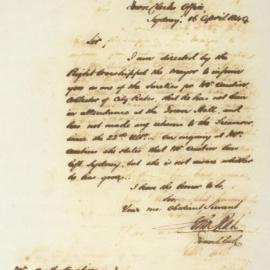 Town Clerks Office
Sydney, 16 April 184
Sir,
I am directed by the
Right Worshipful the Mayor to inform
you as one of the Sureties for Mr
Collector of City Rates, that he has not been
in attendance at the Town Hall, and
has not made any return to the Treasurer
since the 22nd Ult. On inquiry at Mr
she states that Mr has
left Sydney, but she is not aware whither
he has gone.
I have the honor to be,
Sir,
Your mo. Obedient Servant
Town Clerk